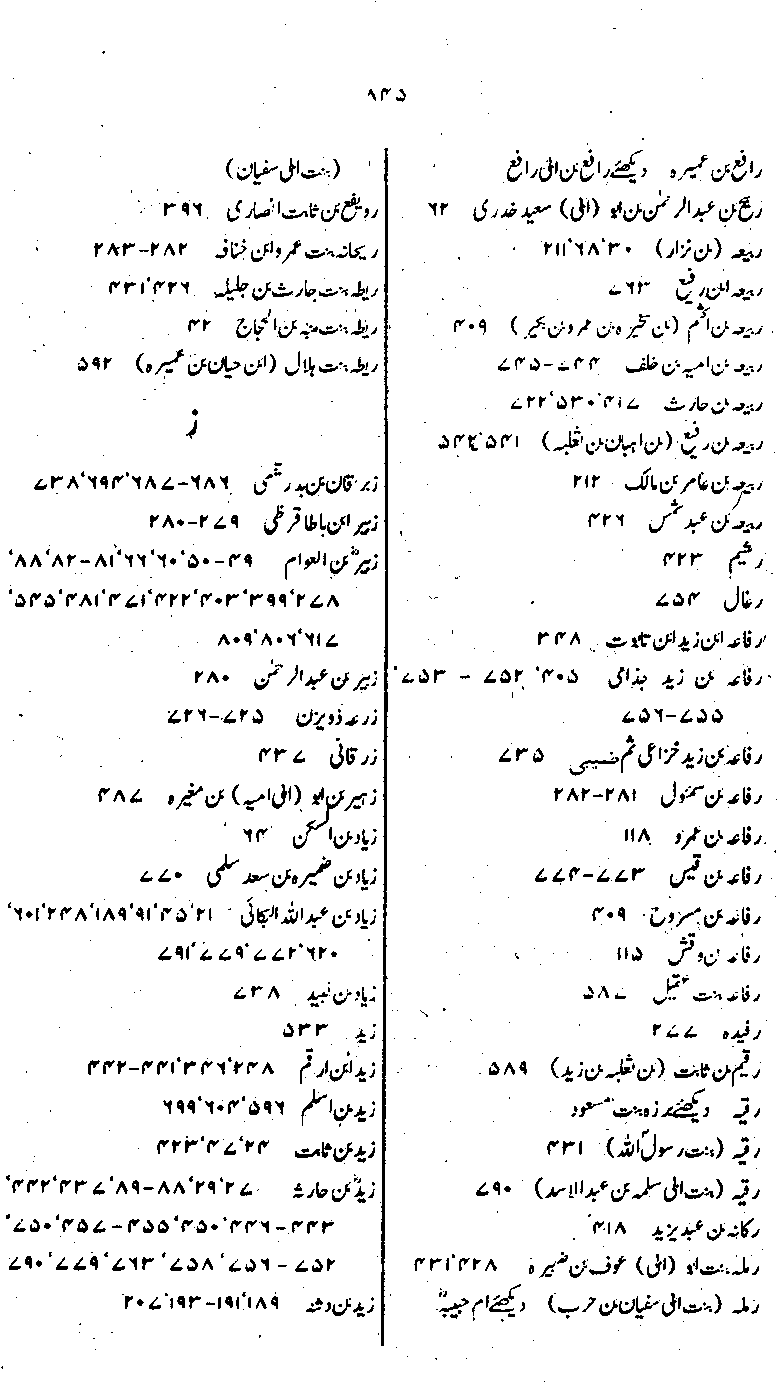 ۸۴۵
رافع بن عمیرہ دیکھئے رافع بن ابی رافع
ربیح بن عبدالرحمٰن بن ابو (ابی) سعید خدری ۶۲
ربیعہ (بن نزار) ۳۰٬۶۸٬۲۱۱
ربیعہ ابن رفیع ۷۶۳
ربیعہ بن اکثم (بن سخبرہ بن عمرو بن بکیر) ۴۰۹
ربیعہ بن امیہ بن خلف ۷۴۴-۷۴۵
ربیعہ بن حارث ۴۱۷٬۵۳۰٬۷۲۲
ربیعہ بن رفیع (بن اہبان بن ثعلبہ) ۵۴۱٬۵۴۲
ربیعہ بن عامر بن مالک ۲۱۲
ربیعہ بن عبد شمس ۴۲۶
رشیم ۴۲۳
رغال ۷۵۴
رفاعہ ابن زید ابن تابوت ۳۴۸
رفاعہ بن زید جذامی ۴۰۵٬ ۷۵۲ - ۷۵۳٬
۷۵۵-۷۵۶
رفاعہ بن زید خزاعی ثم ضبیبی ۷۳۵
رفاعہ بن سموٴل ۲۸۱-۲۸۲
رفاعہ بن عمرو ۱۱۸
رفاعہ بن قیس ۷۷۳-۷۷۴
رفاعہ بن مسروح ۴۰۹
رفاعہ بن وقش ۱۱۵
رفاعہ بنت عقیل ۵۸۷
رفیدہ ۲۷۷
رقیم بن ثابت (بن ثعلبہ بن زید) ۵۸۹
رقیہ دیکھئے برزہ بنت مسعود
رقیہ (بنت رسول اللہؐ) ۴۳۱
رقیہ (بنت ابی سلمہ بن عبدالاسد) ۷۹۰
رکانہ بن عبد یزید ۴۱۸
رملہ بنت ابو (ابی) عوف بن ضبیرہ ۴۲۸٬۴۳۱
رملہ (بنت ابی سفیان بن حرب) دیکھئے ام حبیبہؓ
(بنت ابی سفیان)
رویفع بن ثابت انصاری ۳۹۶
ریحانہ بنت عمرو ابن خنافہ ۲۸۲-۲۸۳
ریطہ بنت حارث بن جلیلہ ۴۲۶٬۴۳۱
ریطہ بنت منبہ بن الحجاج ۴۲
ریطہ بنت ہلال (ابن حیان بن عمیرہ) ۵۹۲
ز
زبرقان بن بدر تمیمی ۶۸۶-۶۸۷٬۶۹۴٬۷۳۸
زبیر ابن باطا قرظی ۲۷۹-۲۸۰
زبیرؓ بن العوام ۴۹-۵۰٬۶۰٬۶۶٬۸۱-۸۲٬۸۸٬
۲۷۸٬۳۹۹٬۴۰۳٬۴۲۲٬۴۷۱٬۴۸۱٬۵۴۵٬
۶۱۷٬۸۰۶٬۸۰۹
زبیر بن عبدالرحمٰن ۲۸۰
زرعہ ذویزن ۷۲۵-۷۲۶
زرقانی ۴۳۷
زہیر بن ابو (ابی امیہ) بن مغیرہ ۴۸۷
زیاد بن السکن ۶۴
زیاد بن ضمیرہ بن سعد سلمی ۷۷۰
زیاد بن عبداللہ البکائی ۲۱٬۴۵٬۹۱٬۱۸۹٬۲۴۸٬۶۰۱٬
۶۲۰٬۷۷۲٬۷۷۹٬۷۹۱
زیاد بن لبید ۷۳۸
زید ۵۳۳
زید ابن ارقم ۲۴۸٬۳۴۶٬۴۴۱-۴۴۲
زید بن اسلم ۵۹۶٬۶۰۴٬۶۹۹
زید بن ثابت ۲۴٬۴۷٬۴۲۳
زیدؓ بن حارثہ ۲۷٬۲۹٬۸۸-۸۹٬۴۳۷٬۴۴۲٬
۴۴۳-۴۴۶٬۴۵۰٬۴۵۵-۴۵۷٬۷۵۰٬
۷۵۲-۷۵۶٬۷۵۸٬۷۶۳٬۷۷۹٬۷۹۰
زید بن دثنہ ۱۸۹٬۱۹۱-۱۹۳٬۲۰۷